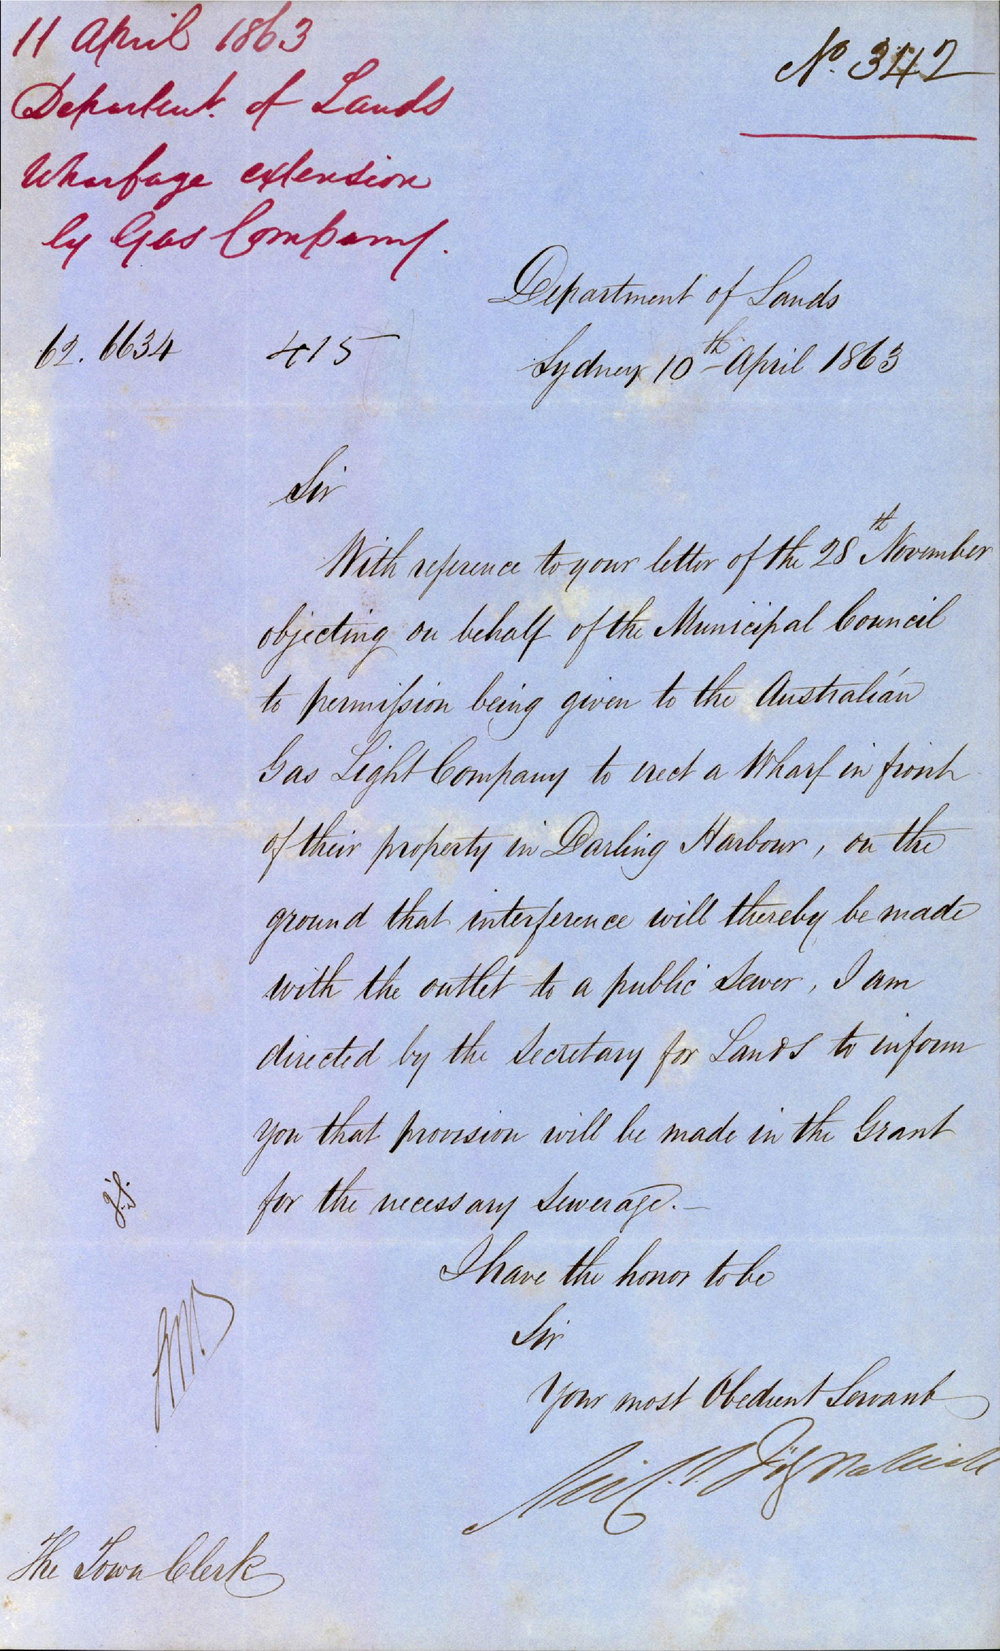 11 April 1863
Department. of Lands
Wharfage extension
by Gas Company.
No. 342
62. 6634 415
Department of Lands
Sydney 10th April 1863
Sir
With reference to your letter of the 28th November
objecting on behalf of the Municipal Council
to permission being given to the Australian
Gas Light Company to erect a Wharf in front
of their property in Darling Harbour, on the
ground that interference will thereby be made
with the outlet to a public Sewer, I am
directed by the Secretary for Lands to inform
you that provision will be made in the Grant
for the necessary Sewerage.—
I have the honor to be
Sir
Your most Obedient Servant
The Town Clerk